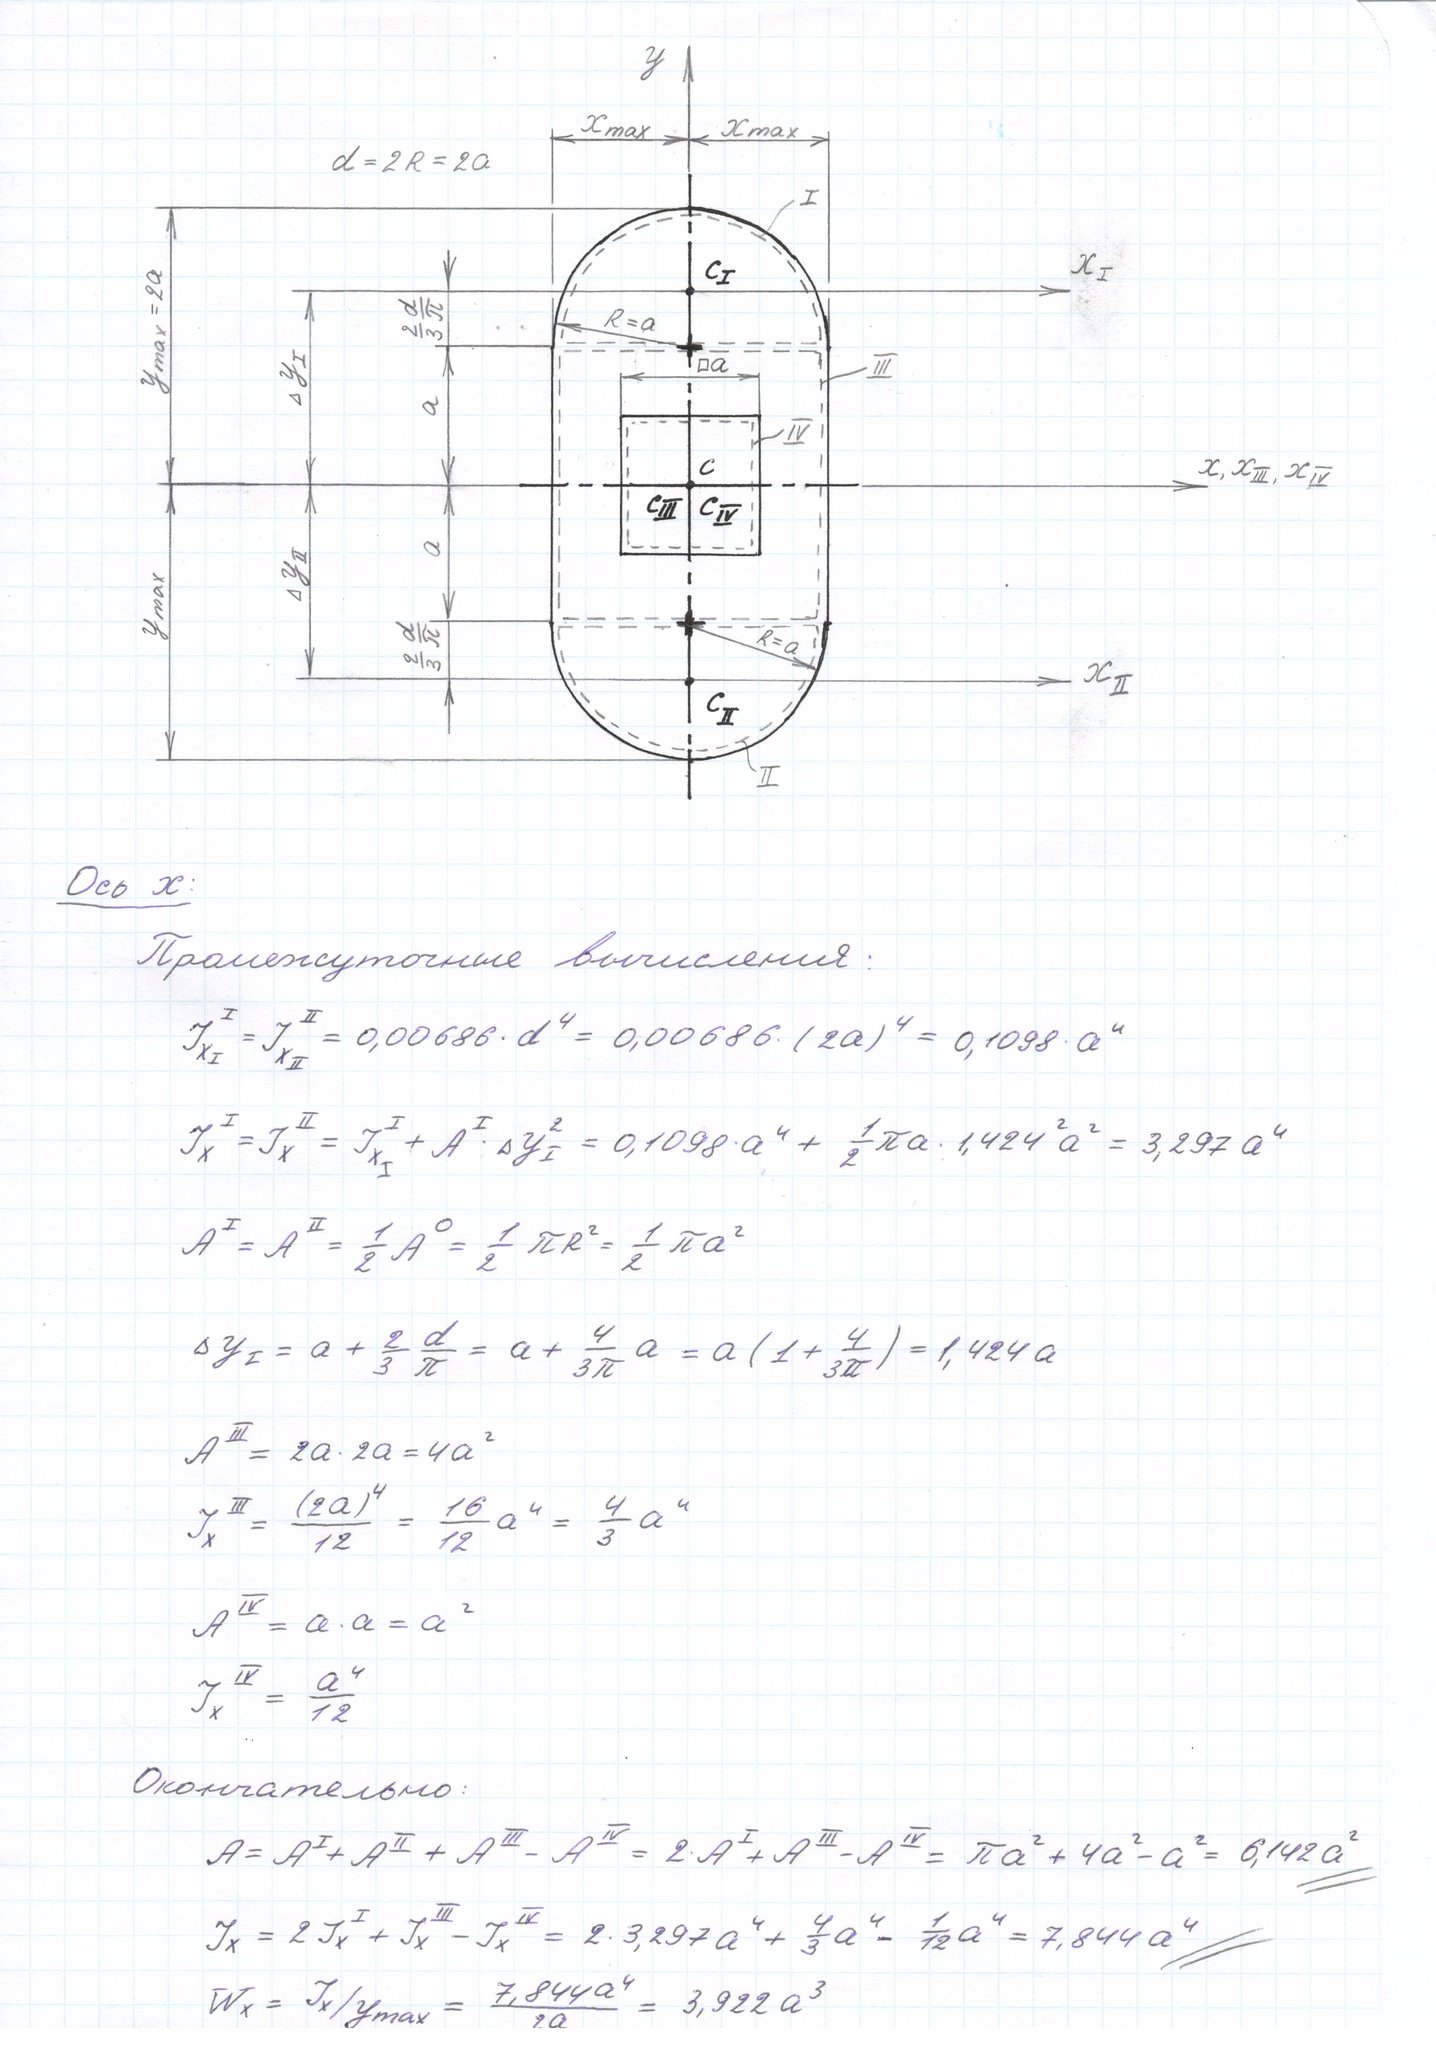 y
xmax xmax
d = 2R = 2a
I
ymax = 2a
xI
CI
ΔyI
2/3 d/π
R=a
□a
III
a
IV
C
x, xIII, xIV
CIII CIV
ymax
ΔyII
a
2/3 d/π
R=a
xII
CII
II
Ось x:
Промежуточные вычисления:
J_{xI}^I = J_{xII}^{II} = 0,00686 · d⁴ = 0,00686 · (2a)⁴ = 0,1098 · a⁴
J_x^I = J_x^{II} = J_{xI}^I + A^I · Δy_I² = 0,1098 · a⁴ + 1/2 πa · 1,424² a² = 3,297 a⁴
A^I = A^{II} = 1/2 A^O = 1/2 πR² = 1/2 πa²
Δy_I = a + 2/3 d/π = a + 4/3π a = a (1 + 4/3π) = 1,424 a
A^{III} = 2a · 2a = 4a²
J_x^{III} = (2a)⁴/12 = 16/12 a⁴ = 4/3 a⁴
A^{IV} = a · a = a²
J_x^{IV} = a⁴/12
Окончательно:
A = A^I + A^{II} + A^{III} - A^{IV} = 2 · A^I + A^{III} - A^{IV} = πa² + 4a² - a² = 6,142a²
J_x = 2 J_x^I + J_x^{III} - J_x^{IV} = 2 · 3,297 a⁴ + 4/3 a⁴ - 1/12 a⁴ = 7,844 a⁴
W_x = J_x/y_max = 7,844a⁴/2a = 3,922 a³